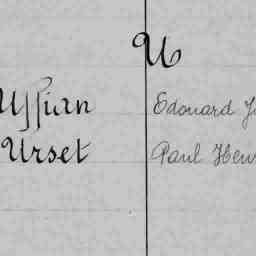 U
Ussian Edouard
Urset Paul Henri